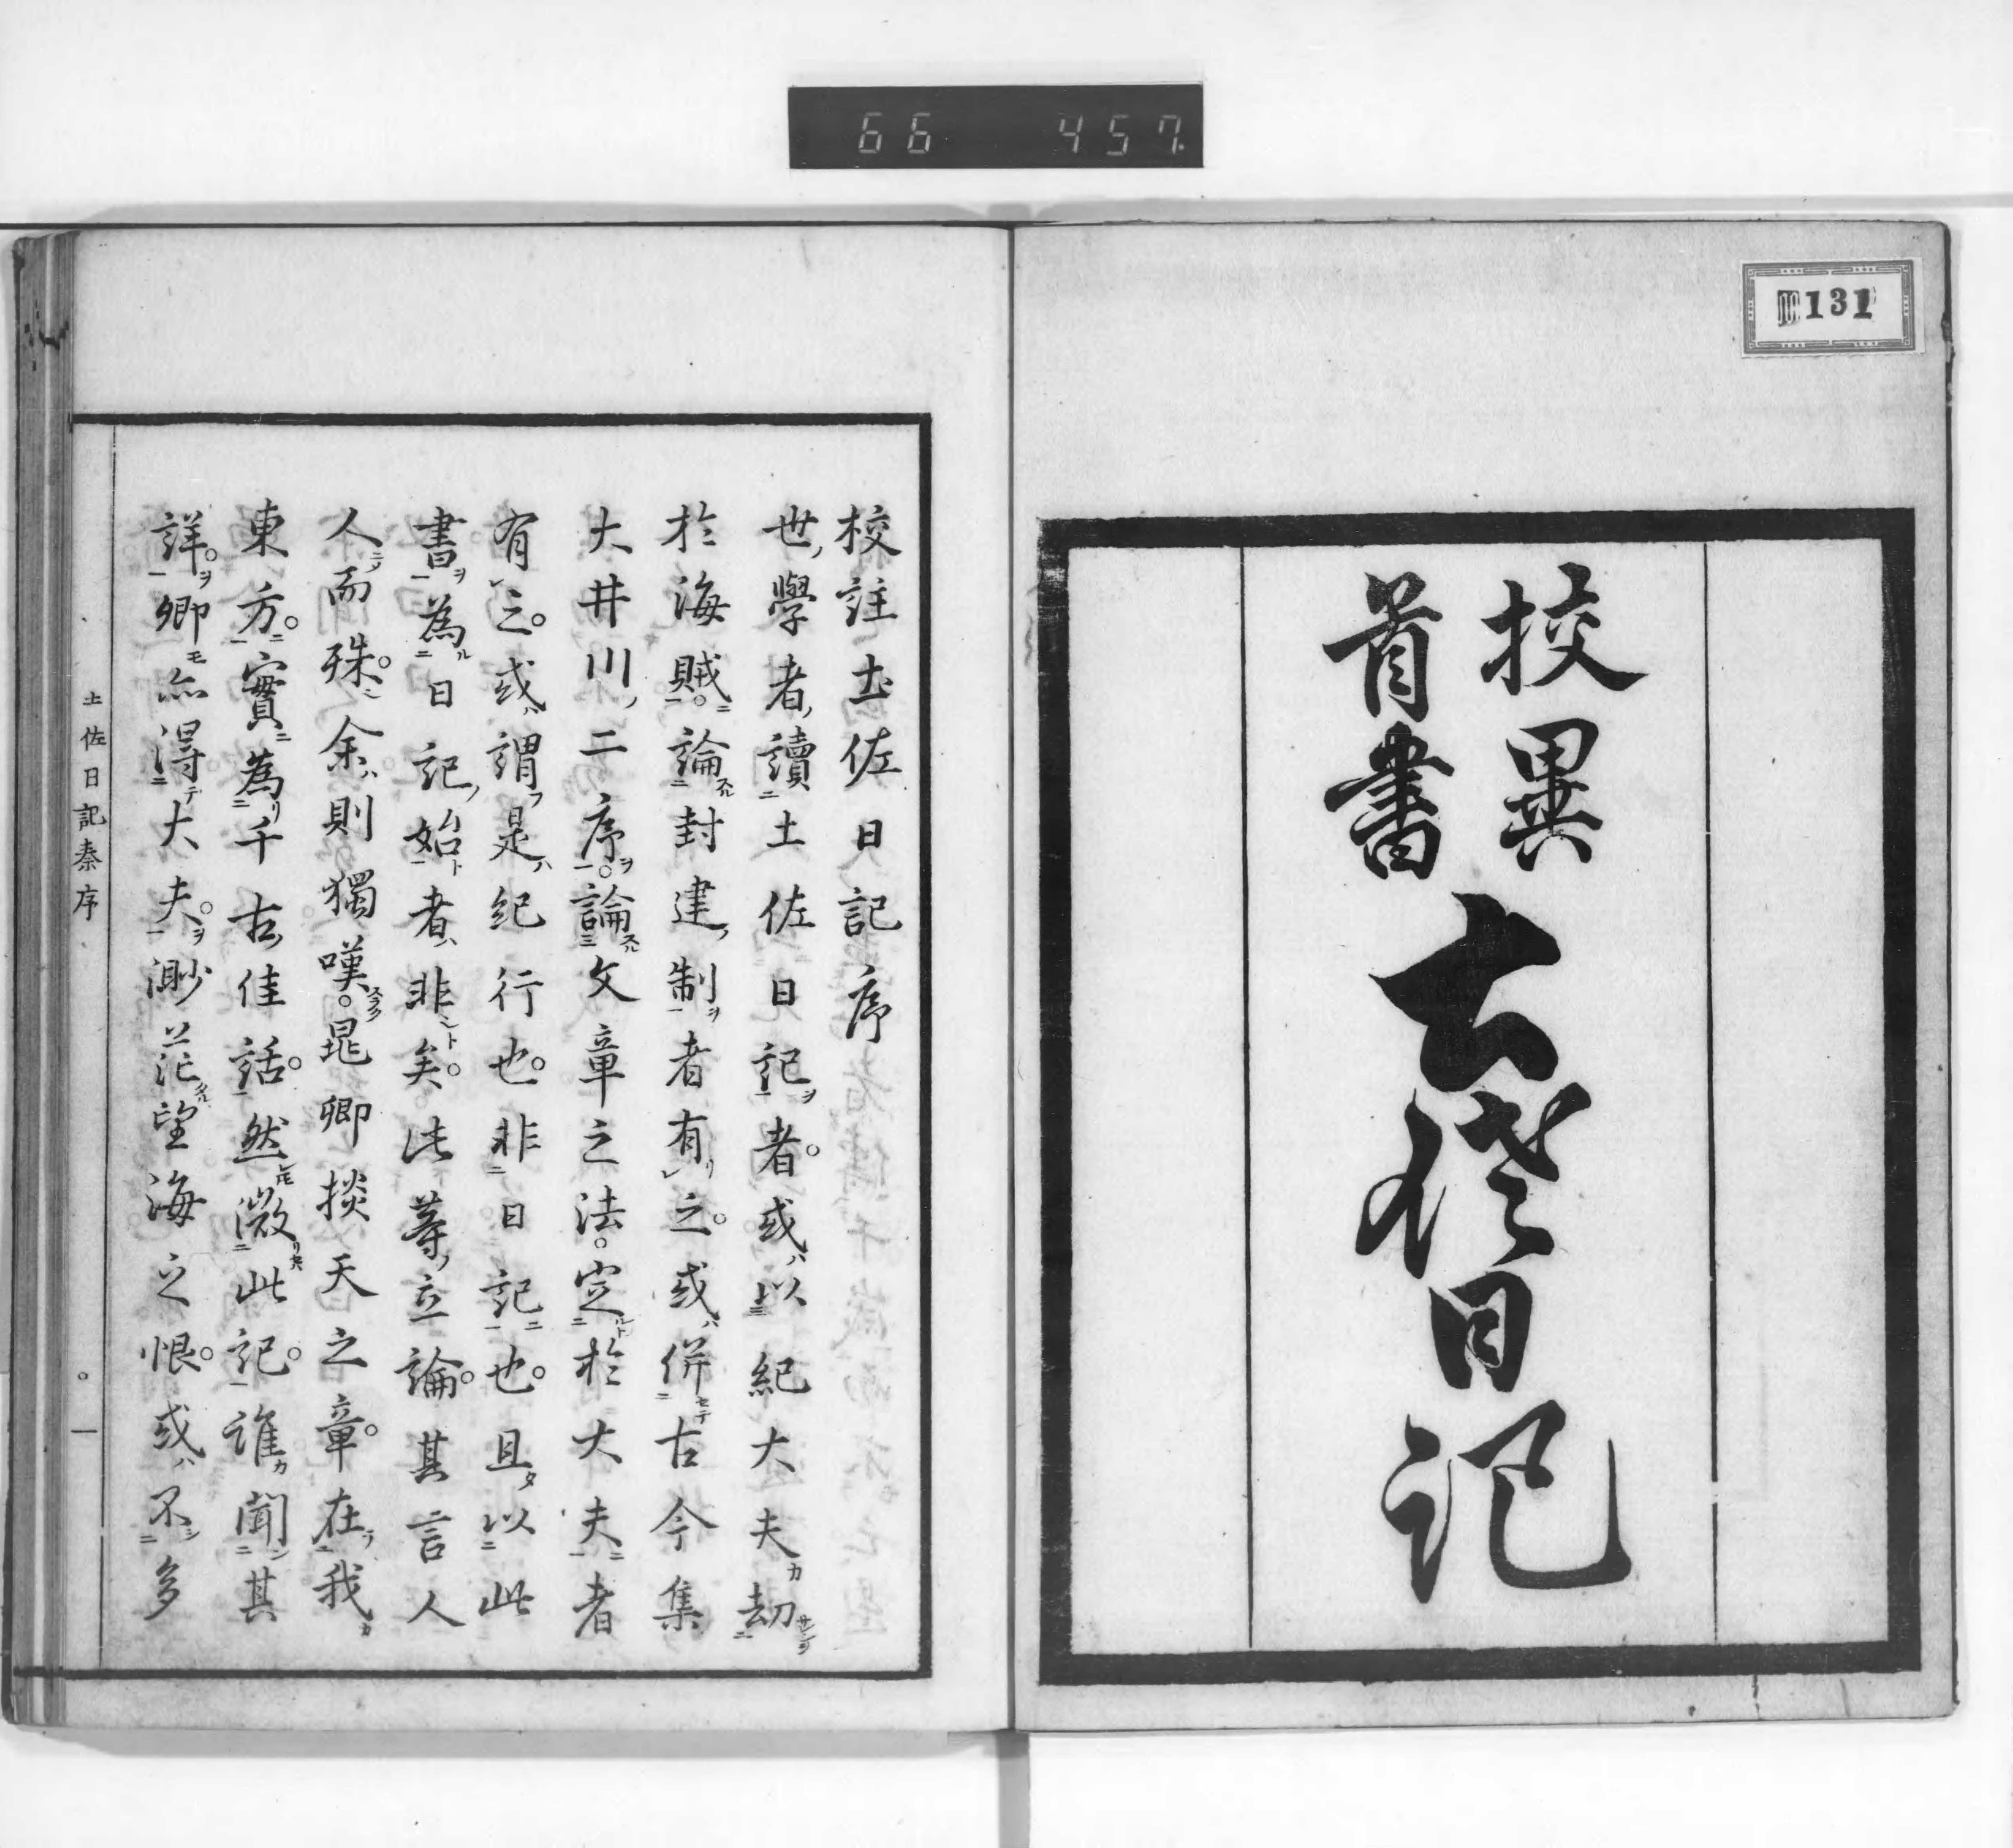 66 457.
131
挍異
首書
土佐日記
校註土佐日記序
世學者讀土佐日記者。或以紀大夫劫
於海賊。論封建制者有之。或併古今集
大井川二序。論文章之法。定於大夫者
有之。或謂是紀行也。非日記也。且以此
書為日記始者非矣。此等立論。其言人
人而殊。余則獨嘆。晁卿掞天之章。在我
東方。實為千古佳話。然微此記。誰聞其
詳。卿亦得大夫。渺茫望海之恨。或不多
土佐日記秦序 ○ 一